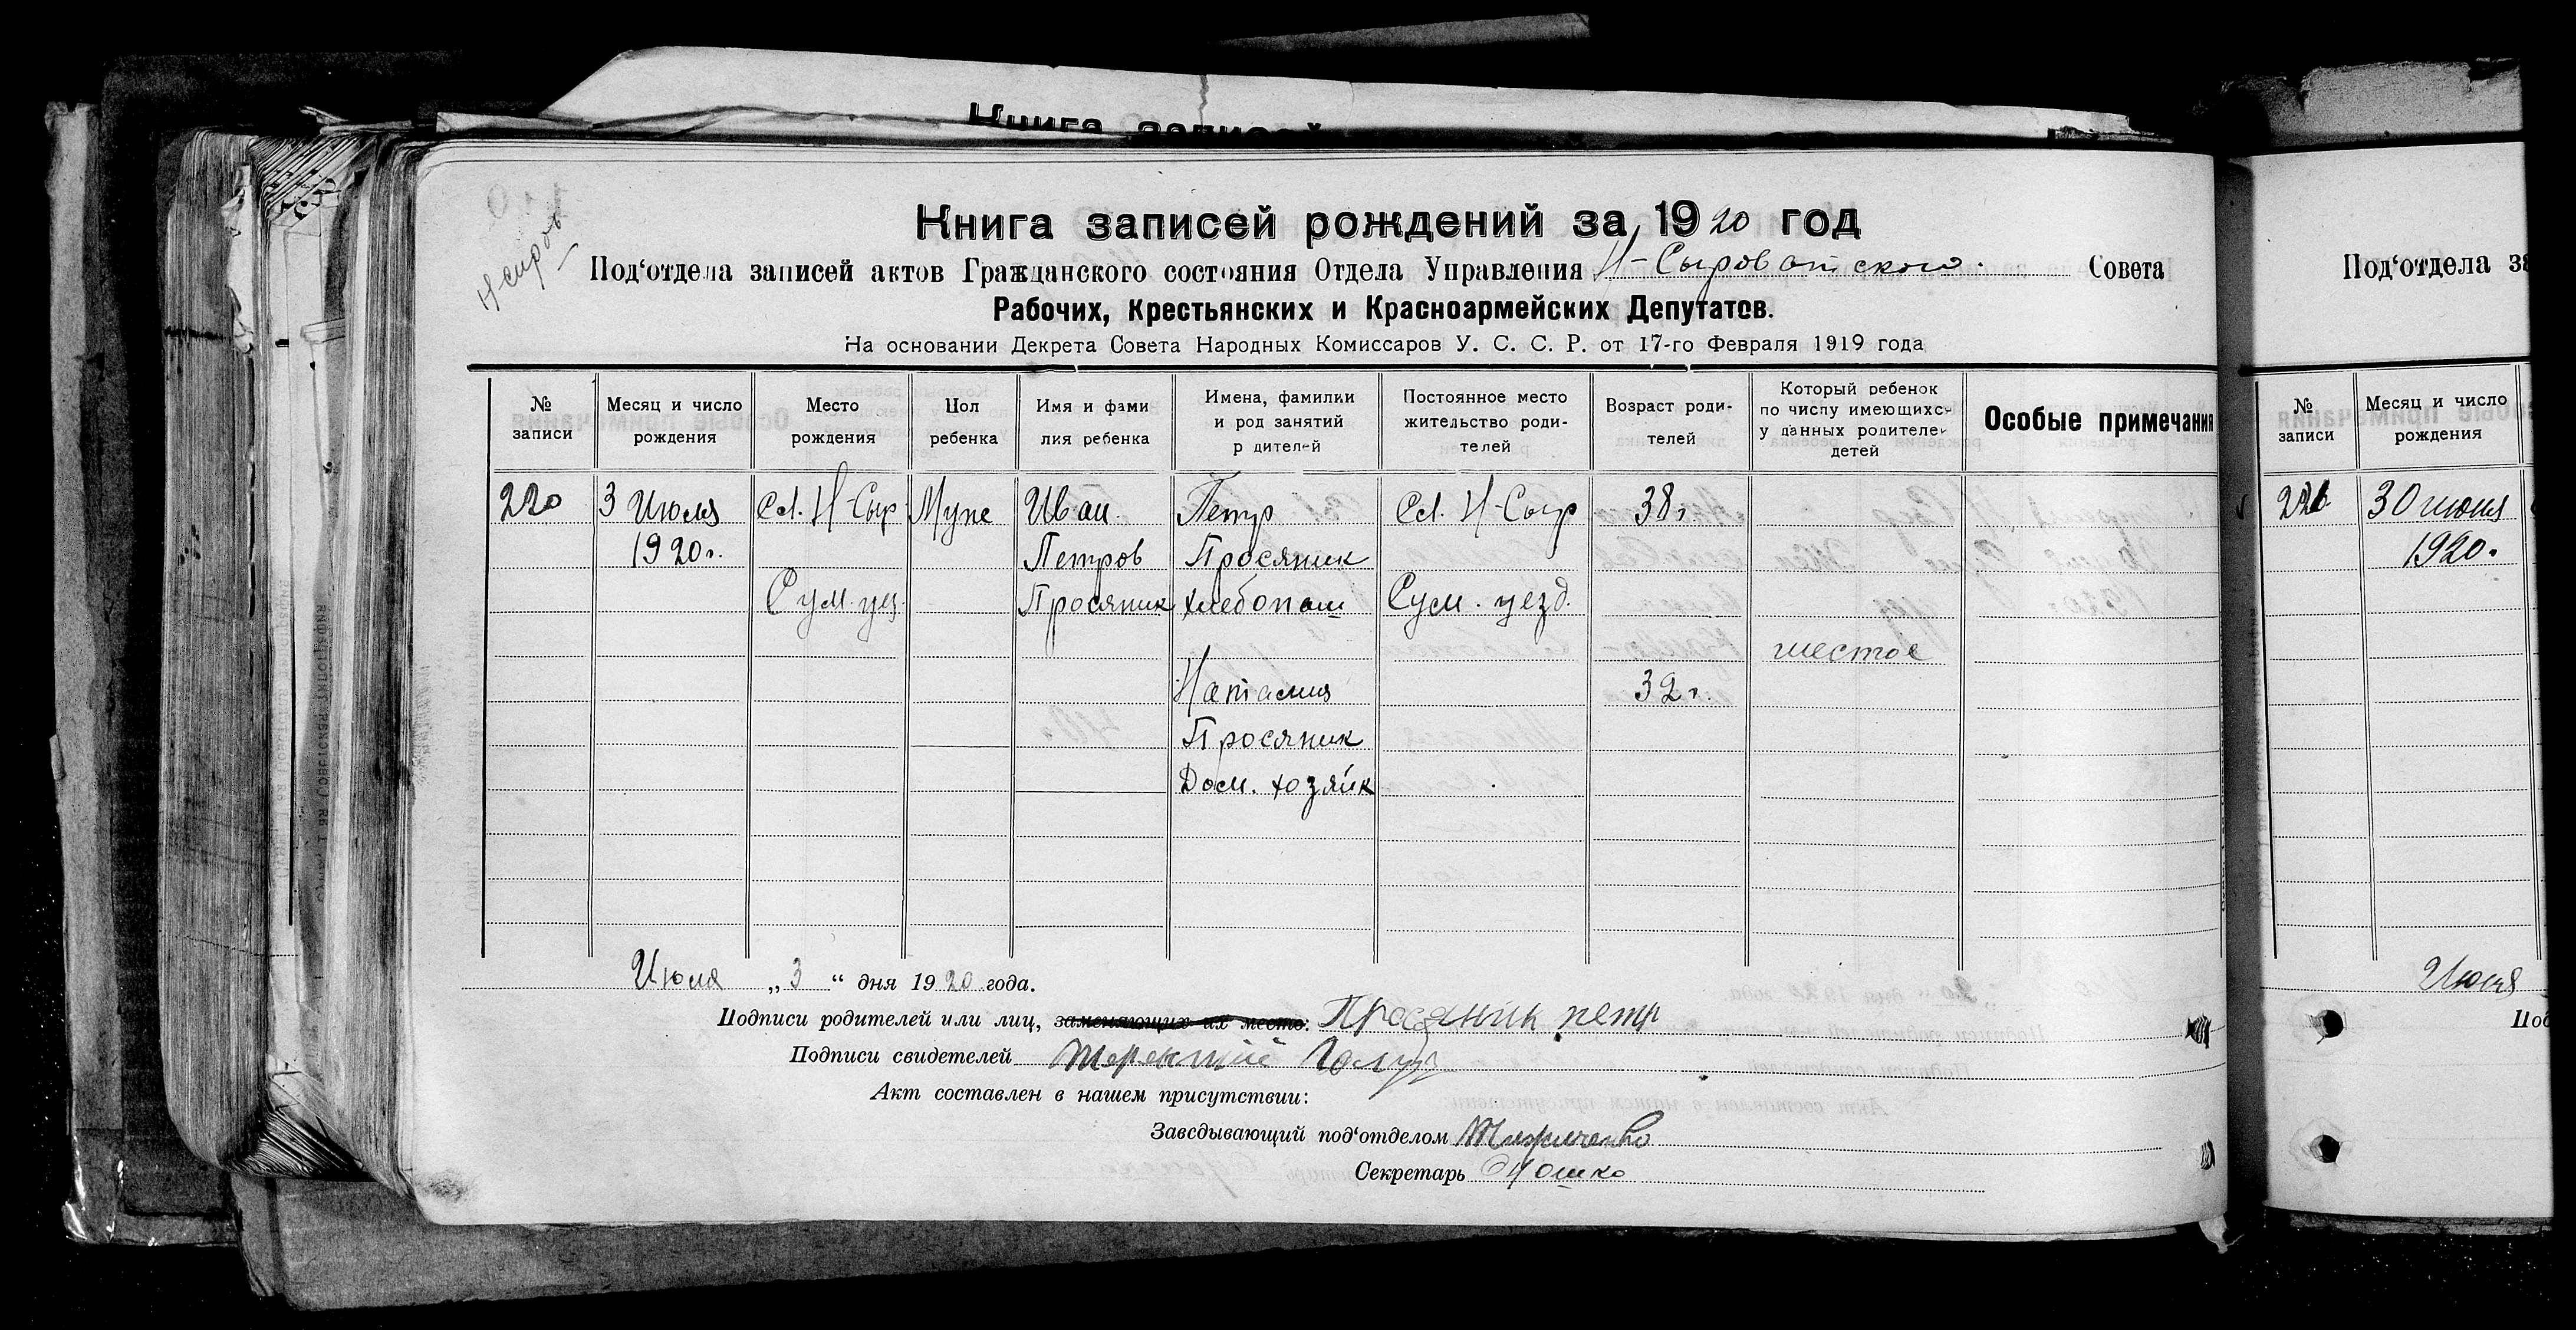 Книга записей
Н сиров
Книга записей рождений за 1920 год
Под‘отдела записей актов Гражданского состояния Отдела Управления Н-Сыроватского Совета
Рабочих, Крестьянских и Красноармейских Депутатов.
На основании Декрета Совета Народных Комиссаров У. С. С. Р. от 17-го Февраля 1919 года
№ записи | Месяц и число рождения | Место рождения | Пол ребенка | Имя и фами лия ребенка | Имена, фамилии и род занятий р дителей | Постоянное место жительство роди- телей | Возраст роди- телей | Который ребенок по числу имеющихс- у данных родителе- детей | Особые примечания
220 | 3 Июля | Сл. Н-Сыр | Муже | Иван | Петр | Сл. Н-Сыр | 38 г.
1920 г. | Петров | Просяник
Сум. уез. | Просяник | хлебопаш | Сум. уезд.
шестое
Наталия | 32 г.
Просяник
Дом. хозяйк
Июля „3“ дня 1920 года.
Подписи родителей или лиц, заменяющих их место: Просяник петр
Подписи свидетелей
Акт составлен в нашем присутствии:
Заведывающий под‘отделом
Секретарь
Под‘отдела за
№ записи | Месяц и число рождения
221 | 30 июня
1920 г.
Июля
Под